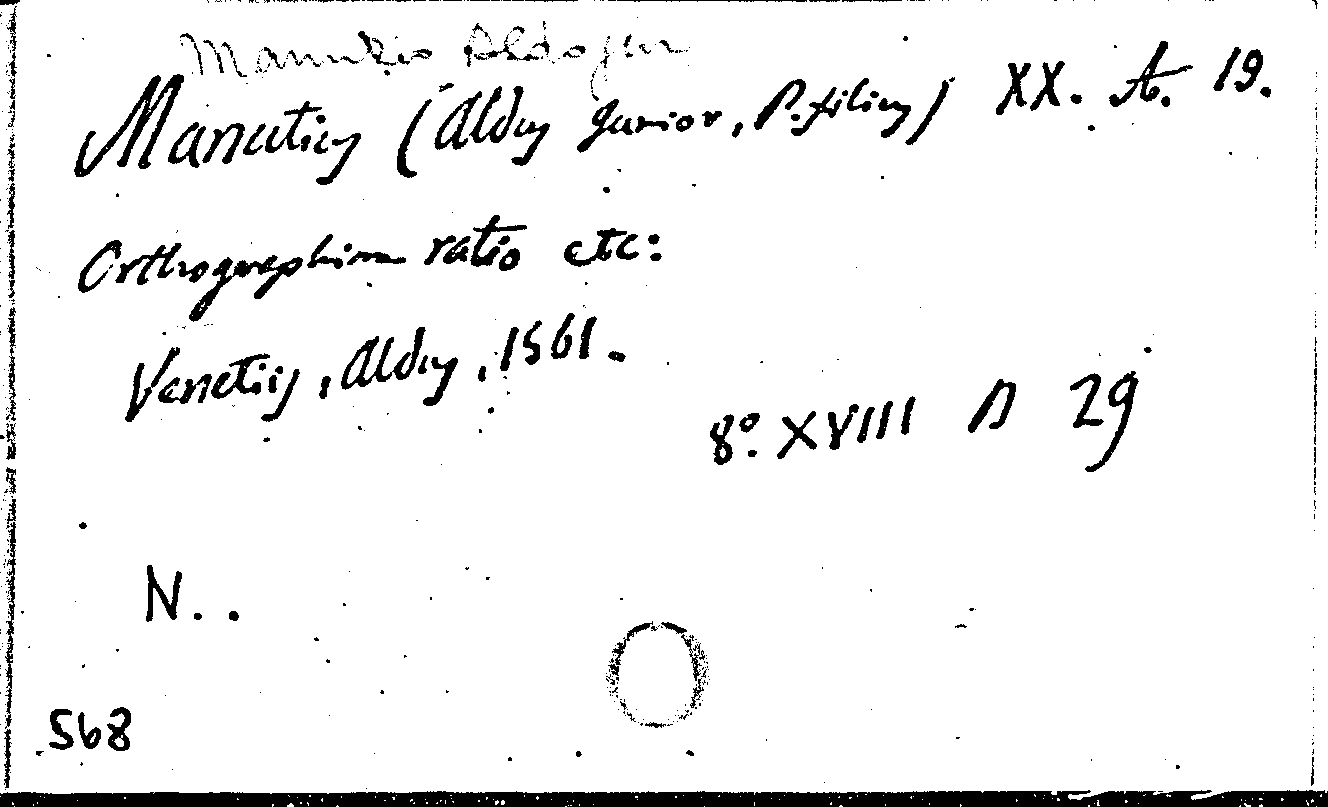 Manuzio Aldo jun
Manutius (Aldus Junior, P. filius) XX. A. 19.
Orthographiae ratio etc:
Venetiis, Aldus, 1561.
8º. XVIII A 29
N..
568